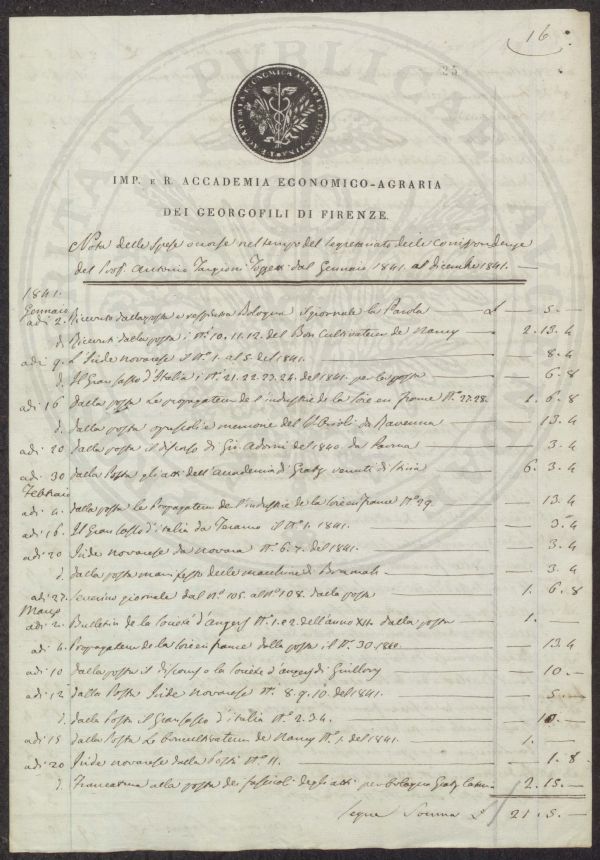 16
25
I. E R. ACCADEMIA ECONOMICO AGRARIA FIORENTINA
UTILITATI PUBLICAE
IMP. E R. ACCADEMIA ECONOMICO-AGRARIA
DEI GEORGOFILI DI FIRENZE.
Nota delle Spese occorse nel tempo del Segretariato delle Corrispondenze
del Prof. Antonio Targioni Tozzetti dal Gennaio 1841. al dicembre 1841. —
1841.
Gennaio
adi 2. Ricevuto dalla posta Bologna il giornale la Parola — £ — 5. —
d. Ricevuti dalla posta i Nri. 10. 11. 12. del Bon Cultivateur de Nancy — 2. 13. 4
adi 9. L'Iride novarese il No. 1. al 5. del 1841. — 8. 4
d. Il Gran Sasso d'Italia i Nri. 21. 22. 23. 24. del 1841. per la posta — 6. 8
adi 16 dalla posta Le propagateur de l'industrie de la Soie en france No. 27. 28. 1. 6. 8
d. dalla posta opuscoli e memorie del Orioli da Ravenna — 13. 4
adi 20 dalla posta il discorso di Gio. Adorni del 1840. da Parma — 3. 4
adi 30 dalla Posta gli atti dell'Accademia di Gratz venuti di — 6. 3. 4
Febbraio
adi 4. dalla posta le Propagateur de l'industrie de la soie en france No. 29. — 13. 4
adi 16. Il Gran Sasso d'italia da Teramo il No. 1. 1841. — 3. 4
adi 20 Iride novarese da novara No. 6. 7. del 1841. — 3. 4
d. dalla posta manifesto delle macchine di — 3. 4
adi 27. giornale dal No. 105. al No. 108. dalla posta — 1. 6. 8
Marzo
adi 2. Bulletin de la Société d'angers No. 1. e 2. dell'anno XII. dalla posta — 1. —
adi 4. Propagateur de la Soie en france dalla posta il No. 30. 1840. — 13. 4
adi 10 dalla posta il discorso a la Société d'angers di Guillory — 10. —
adi 12 dalla Posta Iride Novarese No. 8. 9. 10. del 1841. — 5. —
d. dalla Posta il Gran Sasso d'italia No. 2. 3. 4. — 10. —
adi 15 dalla Posta Le boncultivateur de Nancy No. 1. del 1841. — 1. —
adi 20 Iride novarese dalla Posta No. 11. — 1. 8
d. Francatura alla posta dei fascicoli degli atti per bologna Gratz — 2. 15. —
Segue Somma £ 21. 5. —